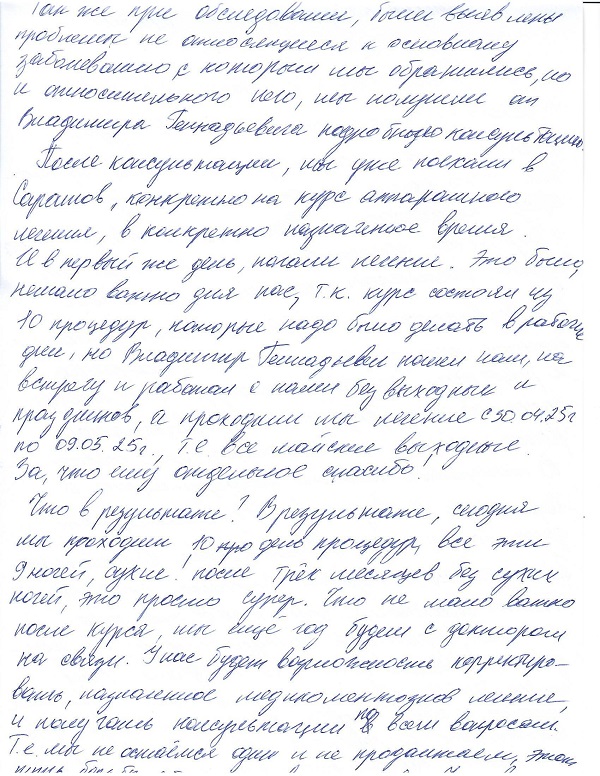 Так же при обследовании, были выявлены
проблемы не относящиеся к основному
заболеванию с которым мы обращались, но
и относительного него, мы получили от
Владимира Геннадьевича подробную консультацию.
После консультации, мы уже поехали в
Саратов, конкретно на курс аппаратного
лечения, в конкретно назначенное время.
И в первый же день, начали лечение. Это было,
немало важно для нас, т.к. курс состоял из
10 процедур, которые надо было делать в рабочие
дни, но Владимир Геннадьевич пошел нам, на
встречу и работал с нами без выходных и
праздников, а проходили мы лечение с 30.04.25г
по 09.05.25г., т.е. все майские выходные.
За, что ему отдельное спасибо!
Что в результате? В результате, сегодня
мы проходим 10 день процедур, все эти
9 ночей, сухие! после трёх месяцев без сухих
ночей, это просто супер. Что не мало важно
после курса, мы ещё год будем с доктором
на связи. У нас будет возможность корректиро-
вать, назначенное медикоментозное лечение,
и получать консультации по всем вопросам.
Т.е. мы не остаёмся одни и не продолжаем, этот